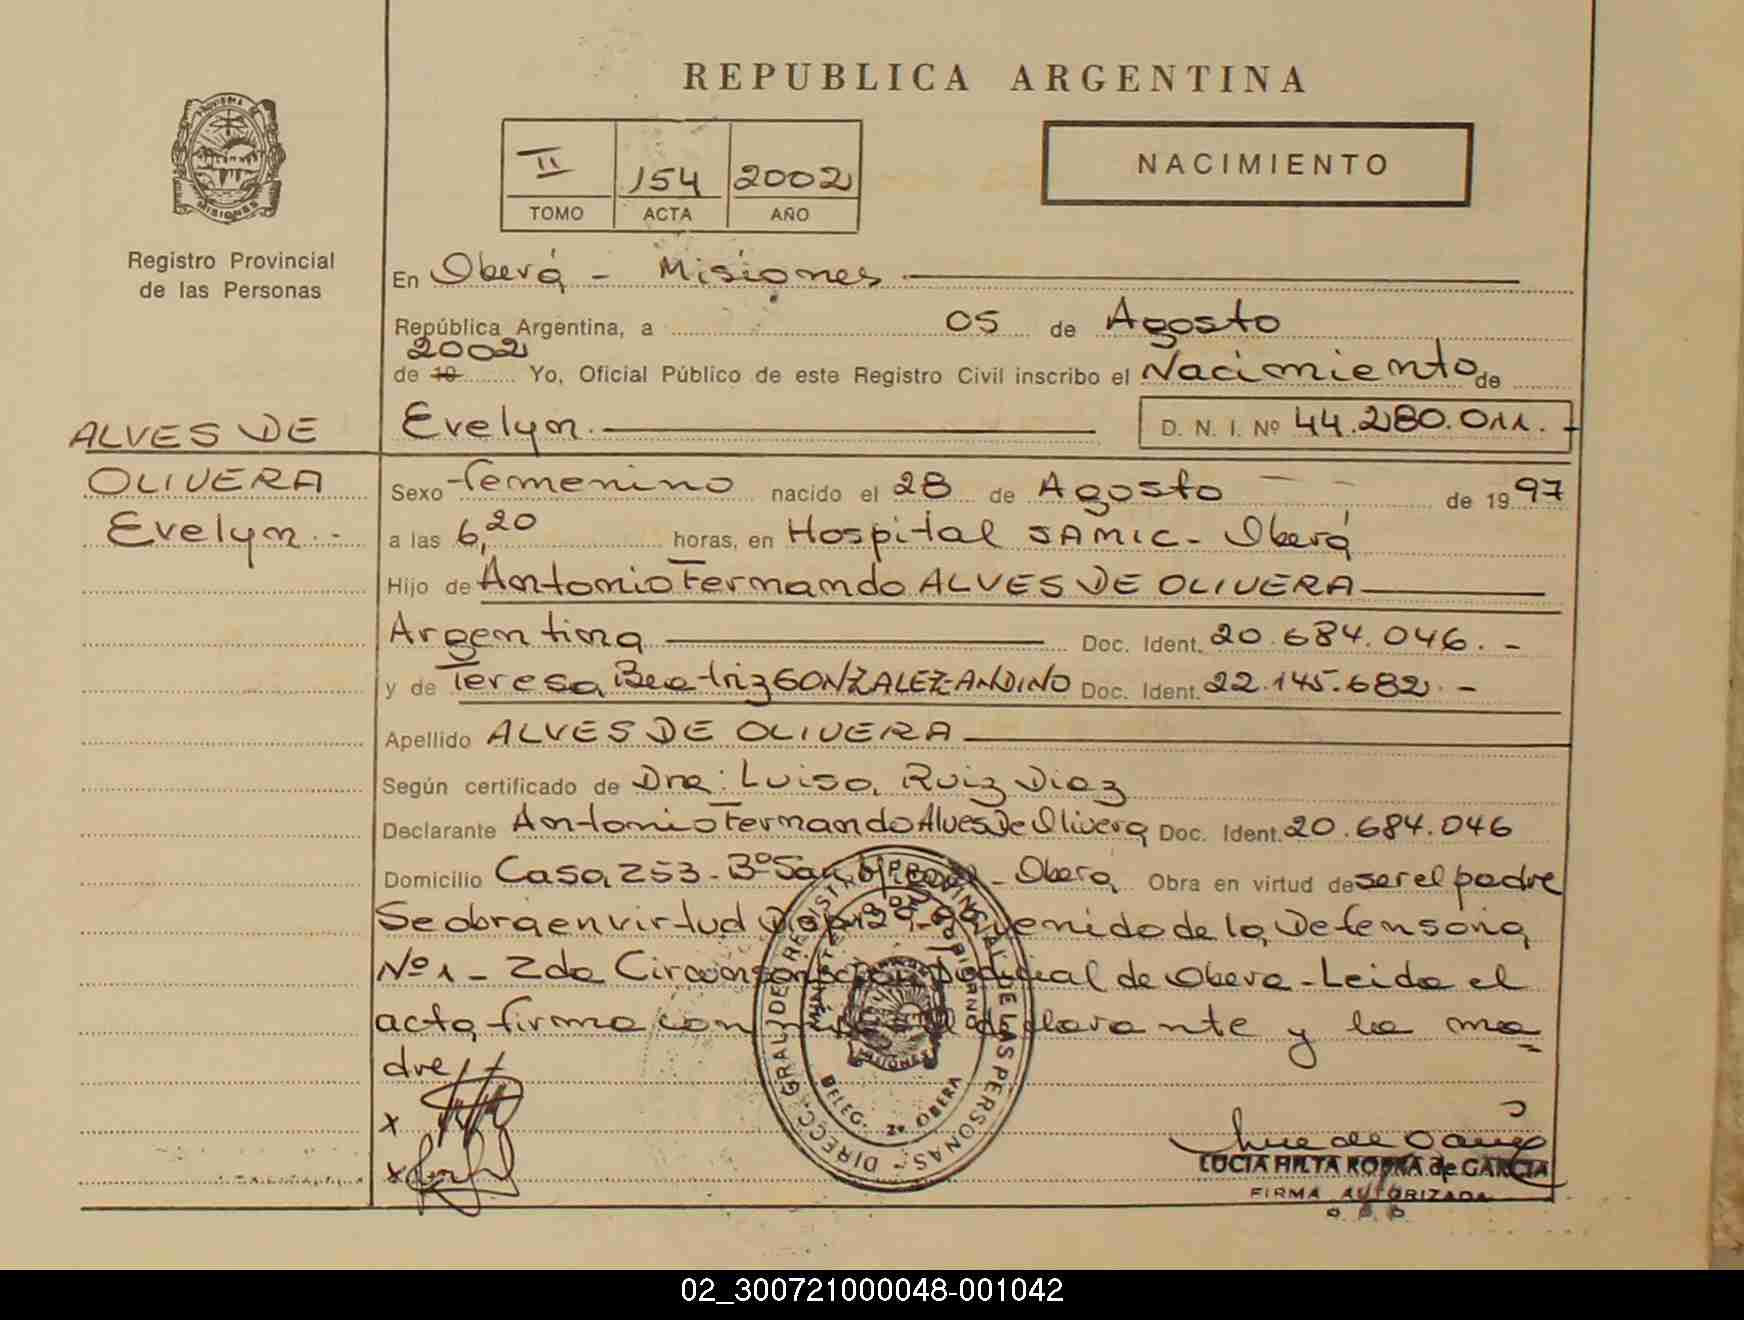 REPUBLICA ARGENTINA
II 154 2002
TOMO ACTA AÑO
NACIMIENTO
PROVINCIA DE
MISIONES
Registro Provincial
de las Personas
En Oberá - Misiones
República Argentina, a 05 de Agosto
2002
de 19 Yo, Oficial Público de este Registro Civil inscribo el Nacimiento de
Evelyn. D. N. I. Nº 44.280.011. -
ALVES DE
OLIVERA
Evelyn. -
Sexo femenino nacido el 28 de Agosto de 1997
a las 6,20 horas, en Hospital SAMIC - Oberá
Hijo de Antonio Fernando ALVES DE OLIVERA
Argentina Doc. Ident. 20.684.046. -
y de Teresa Beatriz GONZALEZ ANDINO Doc. Ident. 22.145.682. -
Apellido ALVES DE OLIVERA
Según certificado de Dra: Luisa Ruiz Diaz
Declarante Antonio Fernando Alves De Olivera Doc. Ident. 20.684.046
Domicilio Casa 253 - Bº San - Oberá Obra en virtud de ser el padre
Se obra en virtud de la Defensoria
Nº 1 - 2da Judicial de Obera - Leida el
acta, firma con el declarante y la ma
dre
x
x
DIRECC. GRAL. DE REGISTRO PROVINCIAL DE LAS PERSONAS -
MINISTERIO DE GOBIERNO
MISIONES
DELEG. 2º OBERA
LUCIA de GARCIA
FIRMA AUTORIZADA
02_300721000048-001042